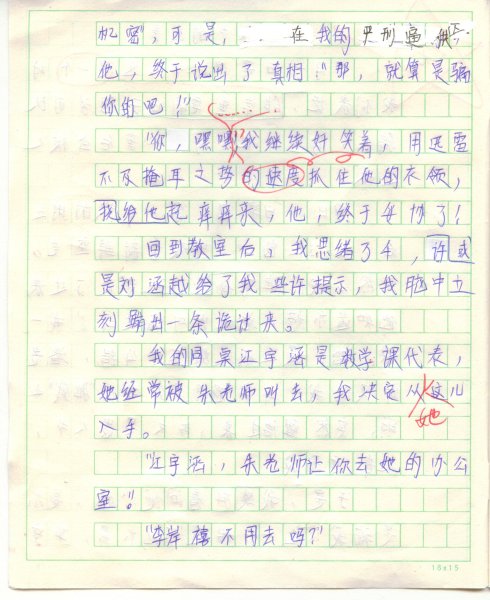 机密",可是,在我的严刑逼供
他,终于说出了真相:"那,就算是骗
你的吧!"
"你,嘿嘿"我继续奸笑着,用迅雷
不及掩耳之势的速度抓住他的衣领,
我给他起库库来,他,终于妥协了!
回到教室后,我思绪了4,许或
是刘涵越给了我些许提示,我脑中立
刻蹦出一条诡计来。
我的同桌江宇涵是数学课代表,
她经常被朱老师叫去,我决定从这儿
她
入手。
"江宇涵,朱老师让你去她的办公
室!"
"李岸禧不用去吗?"
18x15